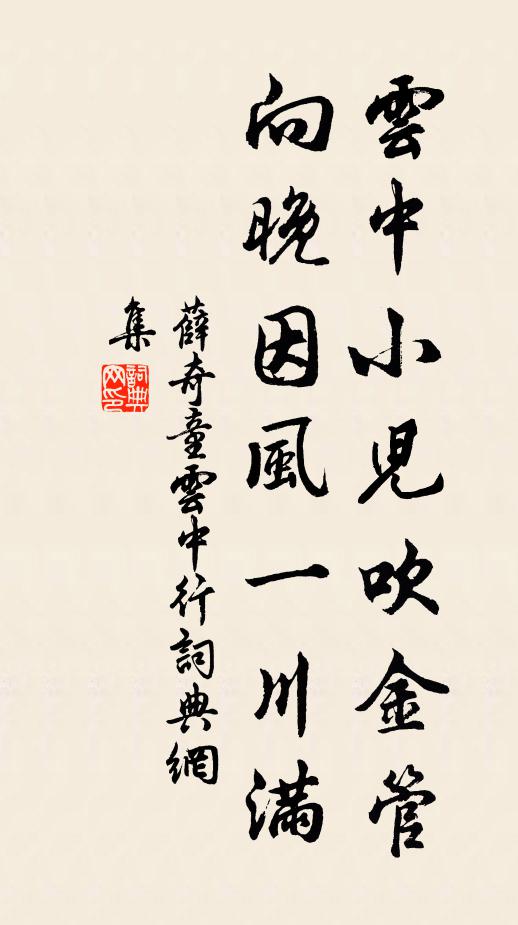 雲中小兒吹金管
向晚因風一川滿
薛奇童雲中行詞典網
集
詞典
网印